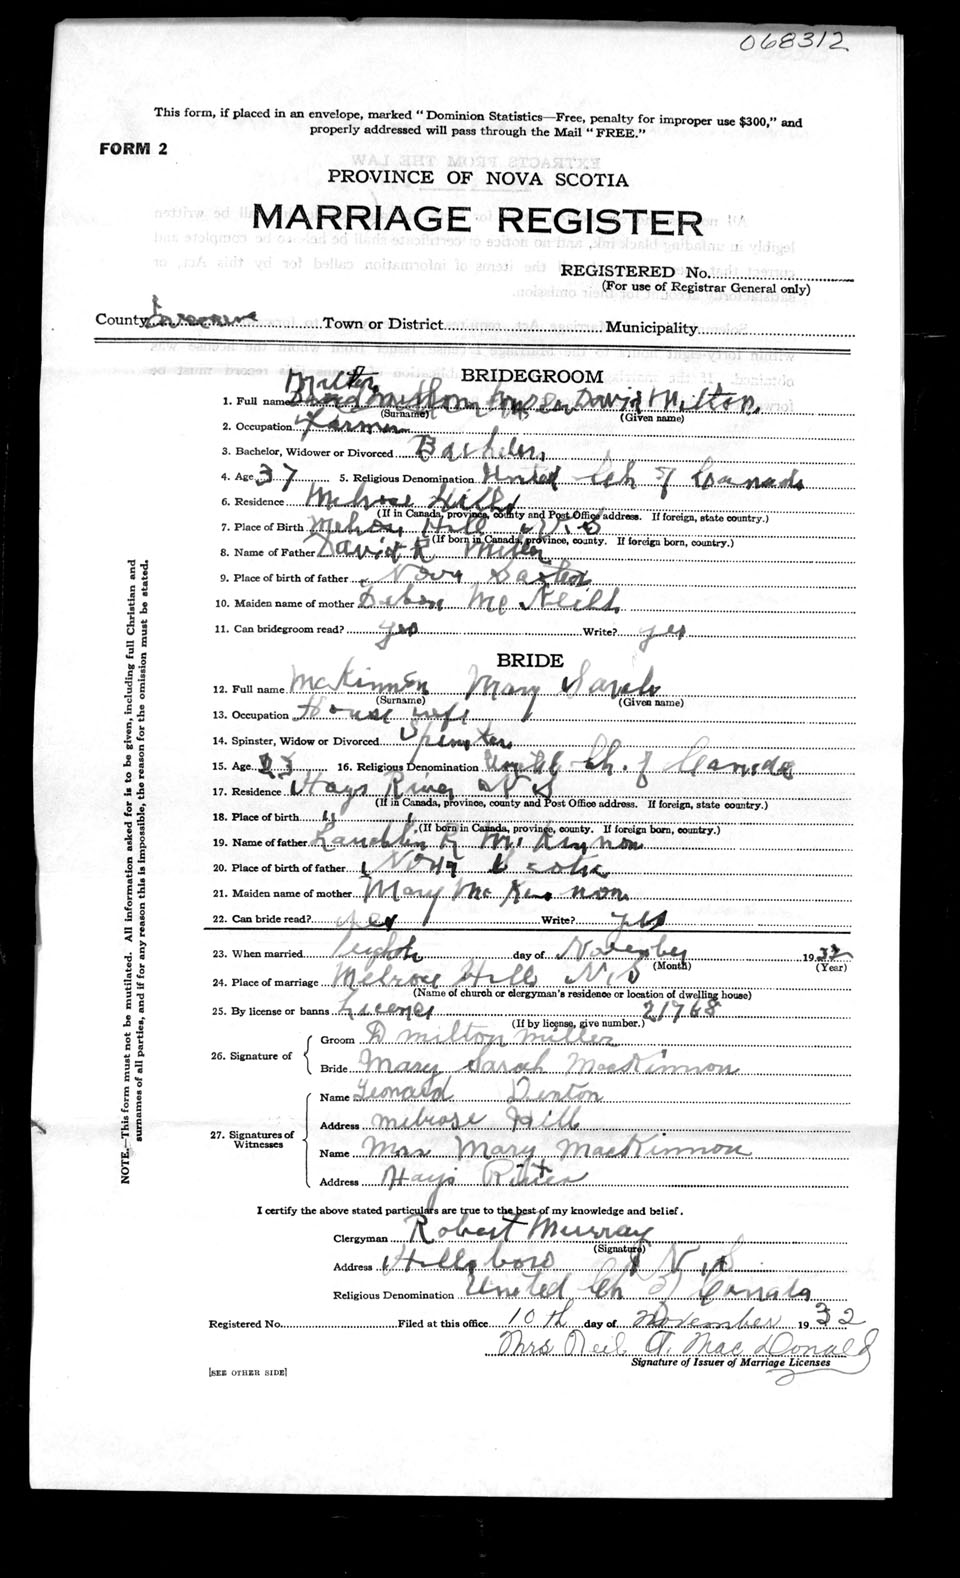 068312
This form, if placed in an envelope, marked "Dominion Statistics—Free, penalty for improper use $300," and
properly addressed will pass through the Mail "FREE."
FORM 2
PROVINCE OF NOVA SCOTIA
MARRIAGE REGISTER
REGISTERED No.
(For use of Registrar General only)
County Inverness Town or District Municipality
BRIDEGROOM
1. Full name David Milton
(Surname) (Given name)
2. Occupation Farmer
3. Bachelor, Widower or Divorced Bachelor
4. Age 37 5. Religious Denomination United Ch of Canada
6. Residence Melrose Hill
(If in Canada, province, county and Post Office address. If foreign, state country.)
7. Place of Birth Melrose Hill N S
(If born in Canada, province, county. If foreign born, country.)
8. Name of Father David R Miller
9. Place of birth of father Nova Scotia
10. Maiden name of mother McNeill
11. Can bridegroom read? yes Write? yes
BRIDE
12. Full name McKinnon Mary Sarah
(Surname) (Given name)
13. Occupation House wife
14. Spinster, Widow or Divorced Spinster
15. Age 16. Religious Denomination United Ch. of Canada
17. Residence Hays River N S
(If in Canada, province, county and Post Office address. If foreign, state country.)
18. Place of birth " "
(If born in Canada, province, county. If foreign born, country.)
19. Name of father Lauchlin R McKinnon
20. Place of birth of father Nova Scotia
21. Maiden name of mother Mary McKinnon
22. Can bride read? yes Write? yes
23. When married day of November 1932
(Month) (Year)
24. Place of marriage Melrose Hill N.S
(Name of church or clergyman's residence or location of dwelling house)
25. By license or banns License 21768
(If by license, give number.)
26. Signature of
Groom D Milton Miller
Bride Mary Sarah MacKinnon
27. Signatures of Witnesses
Name Leonard Denton
Address Melrose Hill
Name Mrs Mary MacKinnon
Address Hays River
I certify the above stated particulars are true to the best of my knowledge and belief.
Clergyman Robert Murray
(Signature)
Address Hillsboro N.S
Religious Denomination United Ch of Canada
Registered No. Filed at this office 10th day of November 1932
Mrs Neil A. MacDonald
Signature of Issuer of Marriage Licenses
[SEE OTHER SIDE]
NOTE.—This form must not be mutilated. All information asked for is to be given, including full Christian and
surnames of all parties, and if for any reason this is impossible, the reason for the omission must be stated.